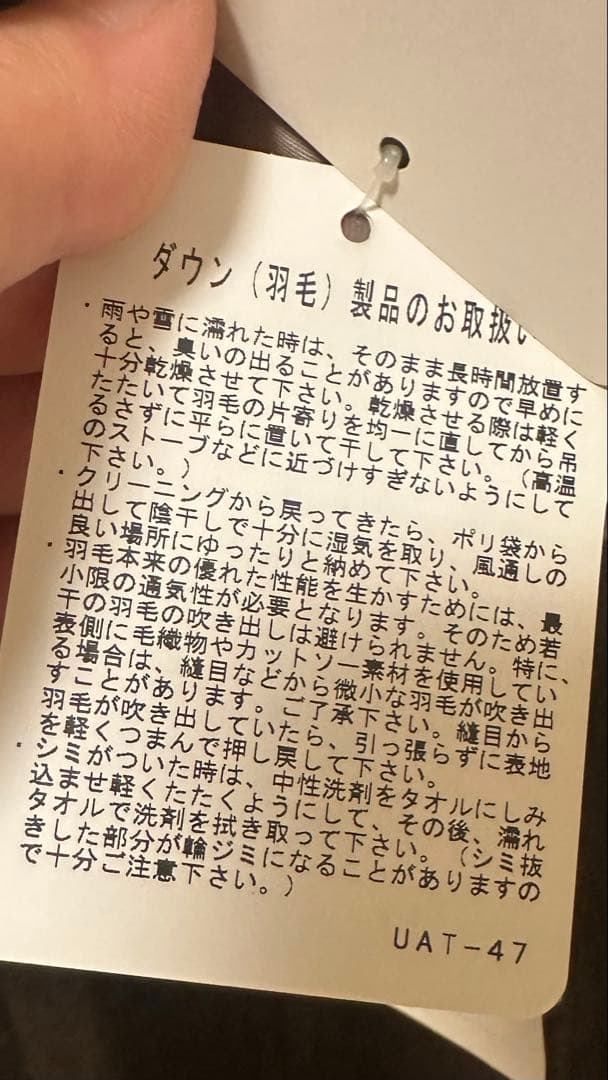 ダウン(羽毛)製品のお取扱い
・雨や雪に濡れた時は、そのまま長時間放置す
ると、臭いの出ることがありますので早めに
十分乾燥させて下さい。乾燥させる際は軽く
たたいて羽毛の片寄りを均一に直してから吊
るさずに平らに置いて干して下さい。(高温
のストーブなどに近づけすぎないようにして
下さい。)
・クリーニングから戻ってきたら、ポリ袋から
出して陰干しで十分に湿気を取り、風通しの
良い場所にゆったりと納めて下さい。
・羽毛本来の優れた性能を生かすためには、最
小限の通気性が必要となります。そのため若
干の羽毛の吹き出しは避けられません。特に、
表側に毛織物やカットソー素材を使用してい
る場合は、縫目などから微小な羽毛が吹き出
すことがあります。ご了承下さい。縫目から
羽毛が吹き出していたら、引っ張らずに表地
を軽くつまんで押し戻して下さい。
・シミがついた時は、中性洗剤をタオルにしみ
込ませ軽くたたくようにして、その後、濡れ
タオルで洗剤を拭き取って下さい。(シミ抜
きした部分が輪ジミになることがありますの
で十分ご注意下さい。)
UAT-47